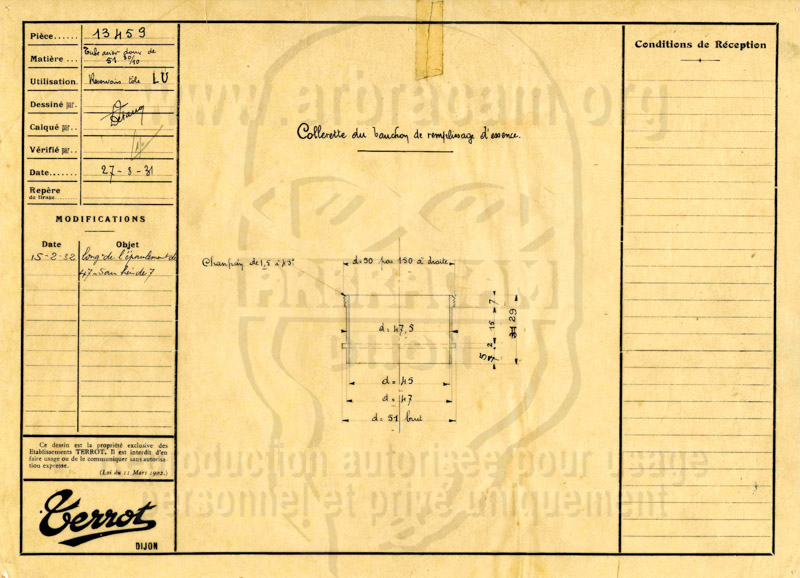 Pièce...... 13459
Matière ... Tube acier doux de
51 30/10
Utilisation. Réservoirs tôle LU
Dessiné par.
Calqué par..
Vérifié par..
Date....... 27-3-31
Repère
de tirage
MODIFICATIONS
Date Objet
15-2-32 long. de l'épaulement de
47 5 au lieu de 7
Ce dessin est la propriété exclusive des
Etablissements TERROT, Il est interdit d'en
faire usage ou de le communiquer sans autorisa-
tion expresse.
(Loi du 11 Mars 1902.)
Terrot
DIJON
www.arbracam.org
Collerette du bouchon de remplissage d'essence.
Chanfrein de 1,5 à 45°
d=50 pas 150 à droite
ARBRACAM
DIJON
d=47,5
7
15
2
5
29
d=45
d=47
d=51 brut
reproduction autorisée pour usage
personnel et privé uniquement
Conditions de Réception